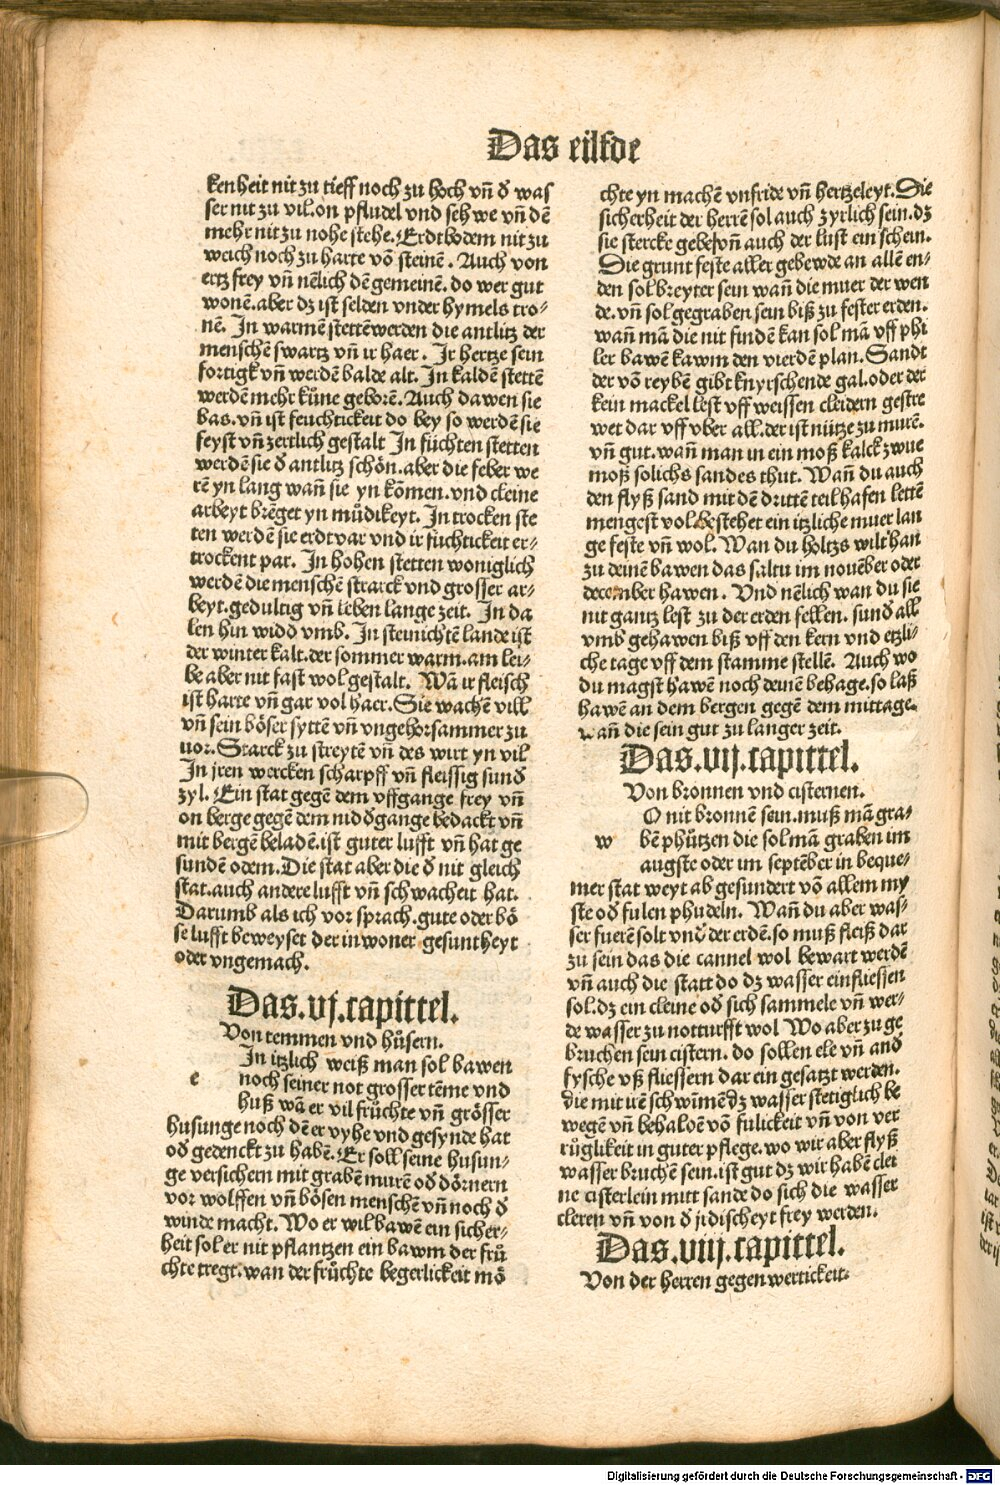 Das eilfde
kenheit nit zu tieff noch zu hoch vn̄ đ was
ser nit zu vil. on pfludel vnd sehwe vn̄ dē
mehr nit zu nohe stehe. Erdtbodem nit zu
weich noch zu harte vō steinē. Auch von
ertz frey vn̄ nēlich dē gemeinē. do wer gut
wonē. aber dz ist selden vnder hymels tro⸗
nē. In warmē stettē werden die antlitz der
menschē swartz vn̄ ir haer. Ir hertze sein
fortigk vn̄ werdē balde alt. In kaldē stettē
werdē mehr kůne geborē. Auch da wen sie
bas. vn̄ ist feuchtickeit do bey so werdē sie
feyst vn̄ zertlich gestalt In fůchten stetten
werdē sie đ antlitz schön. aber die feber we
rē yn lang wan̄ sie yn kōmen. vnd cleine
arbeyt brēget yn můdikeyt. In trocken ste
ten werdē sie erdtvar vnd ir fuchtickeit er⸗
trockent par. In hohen stetten woniglich
werdē die menschē strarck vnd grosser ar⸗
beyt. gedultig vn̄ leben lange zeit. In da
len hin widđ vmb. In steinichtē lande ist
der winter kalt. der sommer warm. am lei⸗
be aber nit fast wol gestalt. Wā ir fleisch
ist harte vn̄ gar vol haer. Sie wachē vill
vn̄ sein böser syttē vn̄ vngehorsammer zu
uor. Starck zu streytē vn̄ des wirt yn vil
In jren wercken scharpff vn̄ fleissig sunđ
zyl. Ein stat gegē dem vffgange frey vn̄
on berge gegē dem nidđgange bedackt vn̄
mit bergē beladē. ist guter lufft vn̄ hat ge
sundē odem. Die stat aber die đ nit gleich
stat. auch andere lufft vn̄ schwacheit hat.
Darumb als ich vor sprach. gute oder bö
se lufft beweyset der inwoner gesuntheyt
oder vngemach.
Das .vj. capittel.
Von temmen vnd hůsern.
In itzlich weiß man sol bawen
e noch seiner not grosser tēme vnd
huß wā er vil frůchte vn̄ grösser
husunge noch dē er vyhe vnd gesynde hat
ođ gedenckt zu habē. Er soll seine husun⸗
ge versichern mit grabē murē ođ dörnern
vor wolffen vn̄ bösen menschē vn̄ noch đ
winde macht. Wo er wil bawē ein sicher⸗
heit sol er nit pflantzen ein bawm der frů
chte tregt. wan der frůchte begerlickeit mö
chte yn machē vnfride vn̄ hertzeleyt. Die
sicherheit der herrē sol auch zyrlich sein. dz
sie stercke gebe vn̄ auch der lust ein schein.
Die grunt feste aller gebewde an allē en⸗
den sol breyter sein wan̄ die muer der wen
de. vn̄ sol gegraben sein biß zu fester erden.
wan̄ mā die nit findē kan sol mā vff phi
ler bawē kawm den vierdē plan. Sandt
der vō reybē gibt knyrschende gal. oder der
kein mackel lest vff weissen cleidern gestre
wet dar vff vber all. der ist nůtze zu murē.
vn̄ gut. wan̄ man in ein moß kalck zwue
moß solichs sandes thut. Wan̄ du auch
den flyß sand mit dē drittē teil hafen lettē
mengest vol bestehet ein itzliche muer lan
ge feste vn̄ wol. Wan du holtzs wilt han
zu deinē bawen das saltu im nouēber oder
december hawen. Vnd nēlich wan du sie
nit gantz lest zu der erden fellen. sunđ all
vmb gehawen biß vff den kern vnd etzli⸗
che tage vff dem stamme stellē. Auch wo
du magst hawē noch deinē behage. so laß
hawē an dem bergen gegē dem mittage.
wan̄ die sein gut zu langer zeit.
Das .vij. capittel.
Von bronnen vnd cisternen.
O nit bronnē sein. muß mā gra⸗
w bē phůtzen die sol mā graben im
augste oder im septēber in beque⸗
mer stat weyt ab gesundert vō allem my
ste ođ fulen phudeln. Wan̄ du aber was⸗
ser fuerē solt vnđ der erdē. so muß fleiß dar
zu sein das die cannel wol bewart werdē
vn̄ auch die statt do dz wasser einfliessen
sol. dz ein cleine ođ sich sammele vn̄ wer⸗
de wasser zu notturfft wol Wo aber zu ge
bruchen sein cistern. do sollen ele vn̄ anđ
fysche vß fliessern dar ein gesatzt werden.
die mit irē schwīmē dz wasser stetiglich be
wegē vn̄ behalōē vō fulickeit vn̄ von ver
růglikeit in guter pflege. wo wir aber flyß
wasser bruchē sein. ist gut dz wir habē clei
ne cisterlein mitt sande do sich die wasser
cleren vn̄ von đ jrdischeyt frey werden.
Das .viij. capittel.
Von der herren gegenwertickeit.
Digitalisierung gefördert durch die Deutsche Forschungsgemeinschaft - DFG